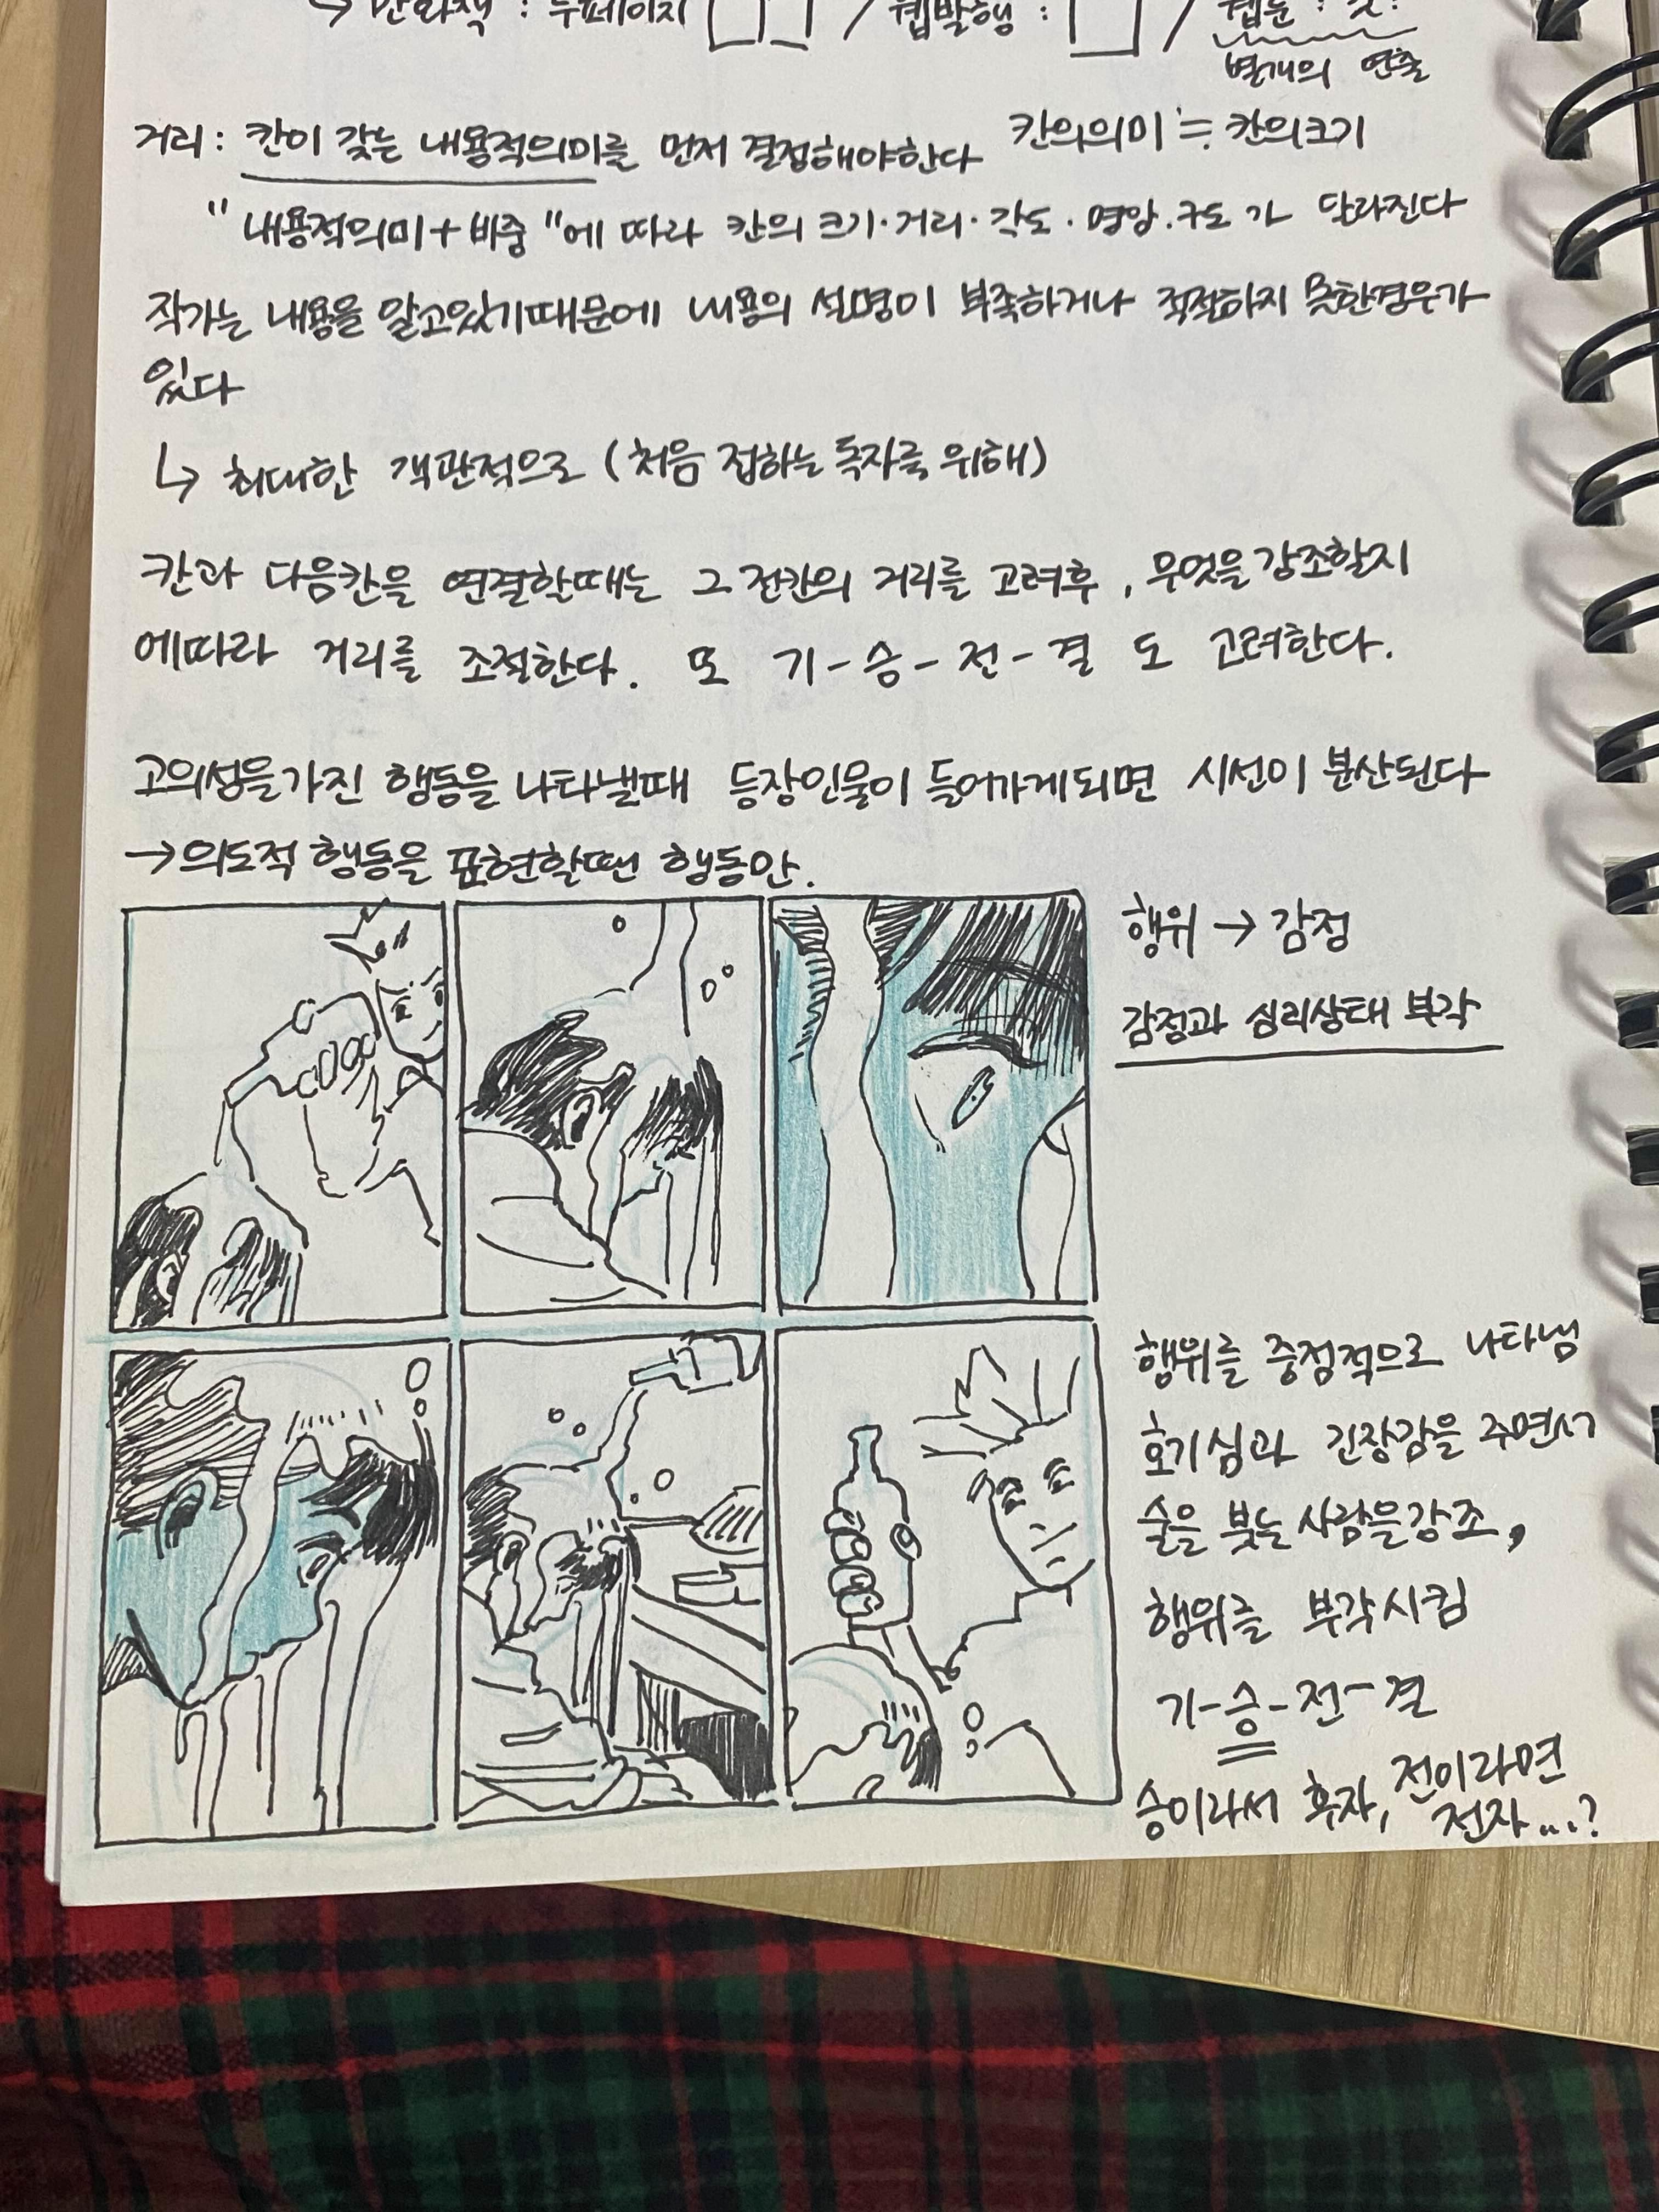 → 만화책 : 두페이지 / 웹발행 : / 웹툰 : 컷!
별개의 연출
거리 : 칸이 갖는 내용적의미를 먼저 결정해야한다 칸의의미 ≒ 칸의크기
"내용적의미+비중"에 따라 칸의 크기·거리·각도·명암.구도가 달라진다
작가는 내용을 알고있기때문에 내용의 설명이 부족하거나 적절하지 못한경우가
있다
↳ 최대한 객관적으로 (처음 접하는 독자를 위해)
칸과 다음칸을 연결할때는 그 전칸의 거리를 고려후, 무엇을 강조할지
에따라 거리를 조절한다. 또 기-승-전-결 도 고려한다.
고의성을가진 행동을 나타낼때 등장인물이 들어가게되면 시선이 분산된다
→의도적 행동을 표현할땐 행동만.
행위 → 감정
감정과 심리상태 부각
행위를 중점적으로 나타냄
호기심과 긴장감을 주면서
술을 붓는 사람을강조,
행위를 부각시킴
기-승-전-결
승이라서 후자, 전이라면
전자...?